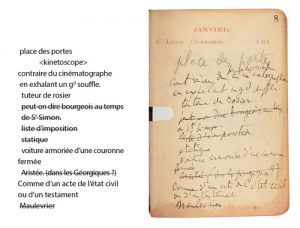 place des portes
<kinetoscope>
contraire du cinématographe
en exhalant un gd souffle.
tuteur de rosier
peut-on dire bourgeois au temps
de St Simon.
liste d'imposition
statique
voiture armoriée d'une couronne
fermée
Aristée. (dans les Géorgiques ?)
Comme d'un acte de l'état civil
ou d'un testament
Maulevrier
8
JANVIER.
Lundi. Circoncision.
place des portes
kinetoscope
contraire du cinématographe
en exhalant un gd souffle
tuteur de rosier
peut-on dire bourgeois au temps
de St Simon
liste d'imposition
statique
voiture armoriée d'une couronne
fermée
Aristée (dans les Géorgiques ?)
Comme d'un acte de l'état civil
ou d'un testament
Maulevrier